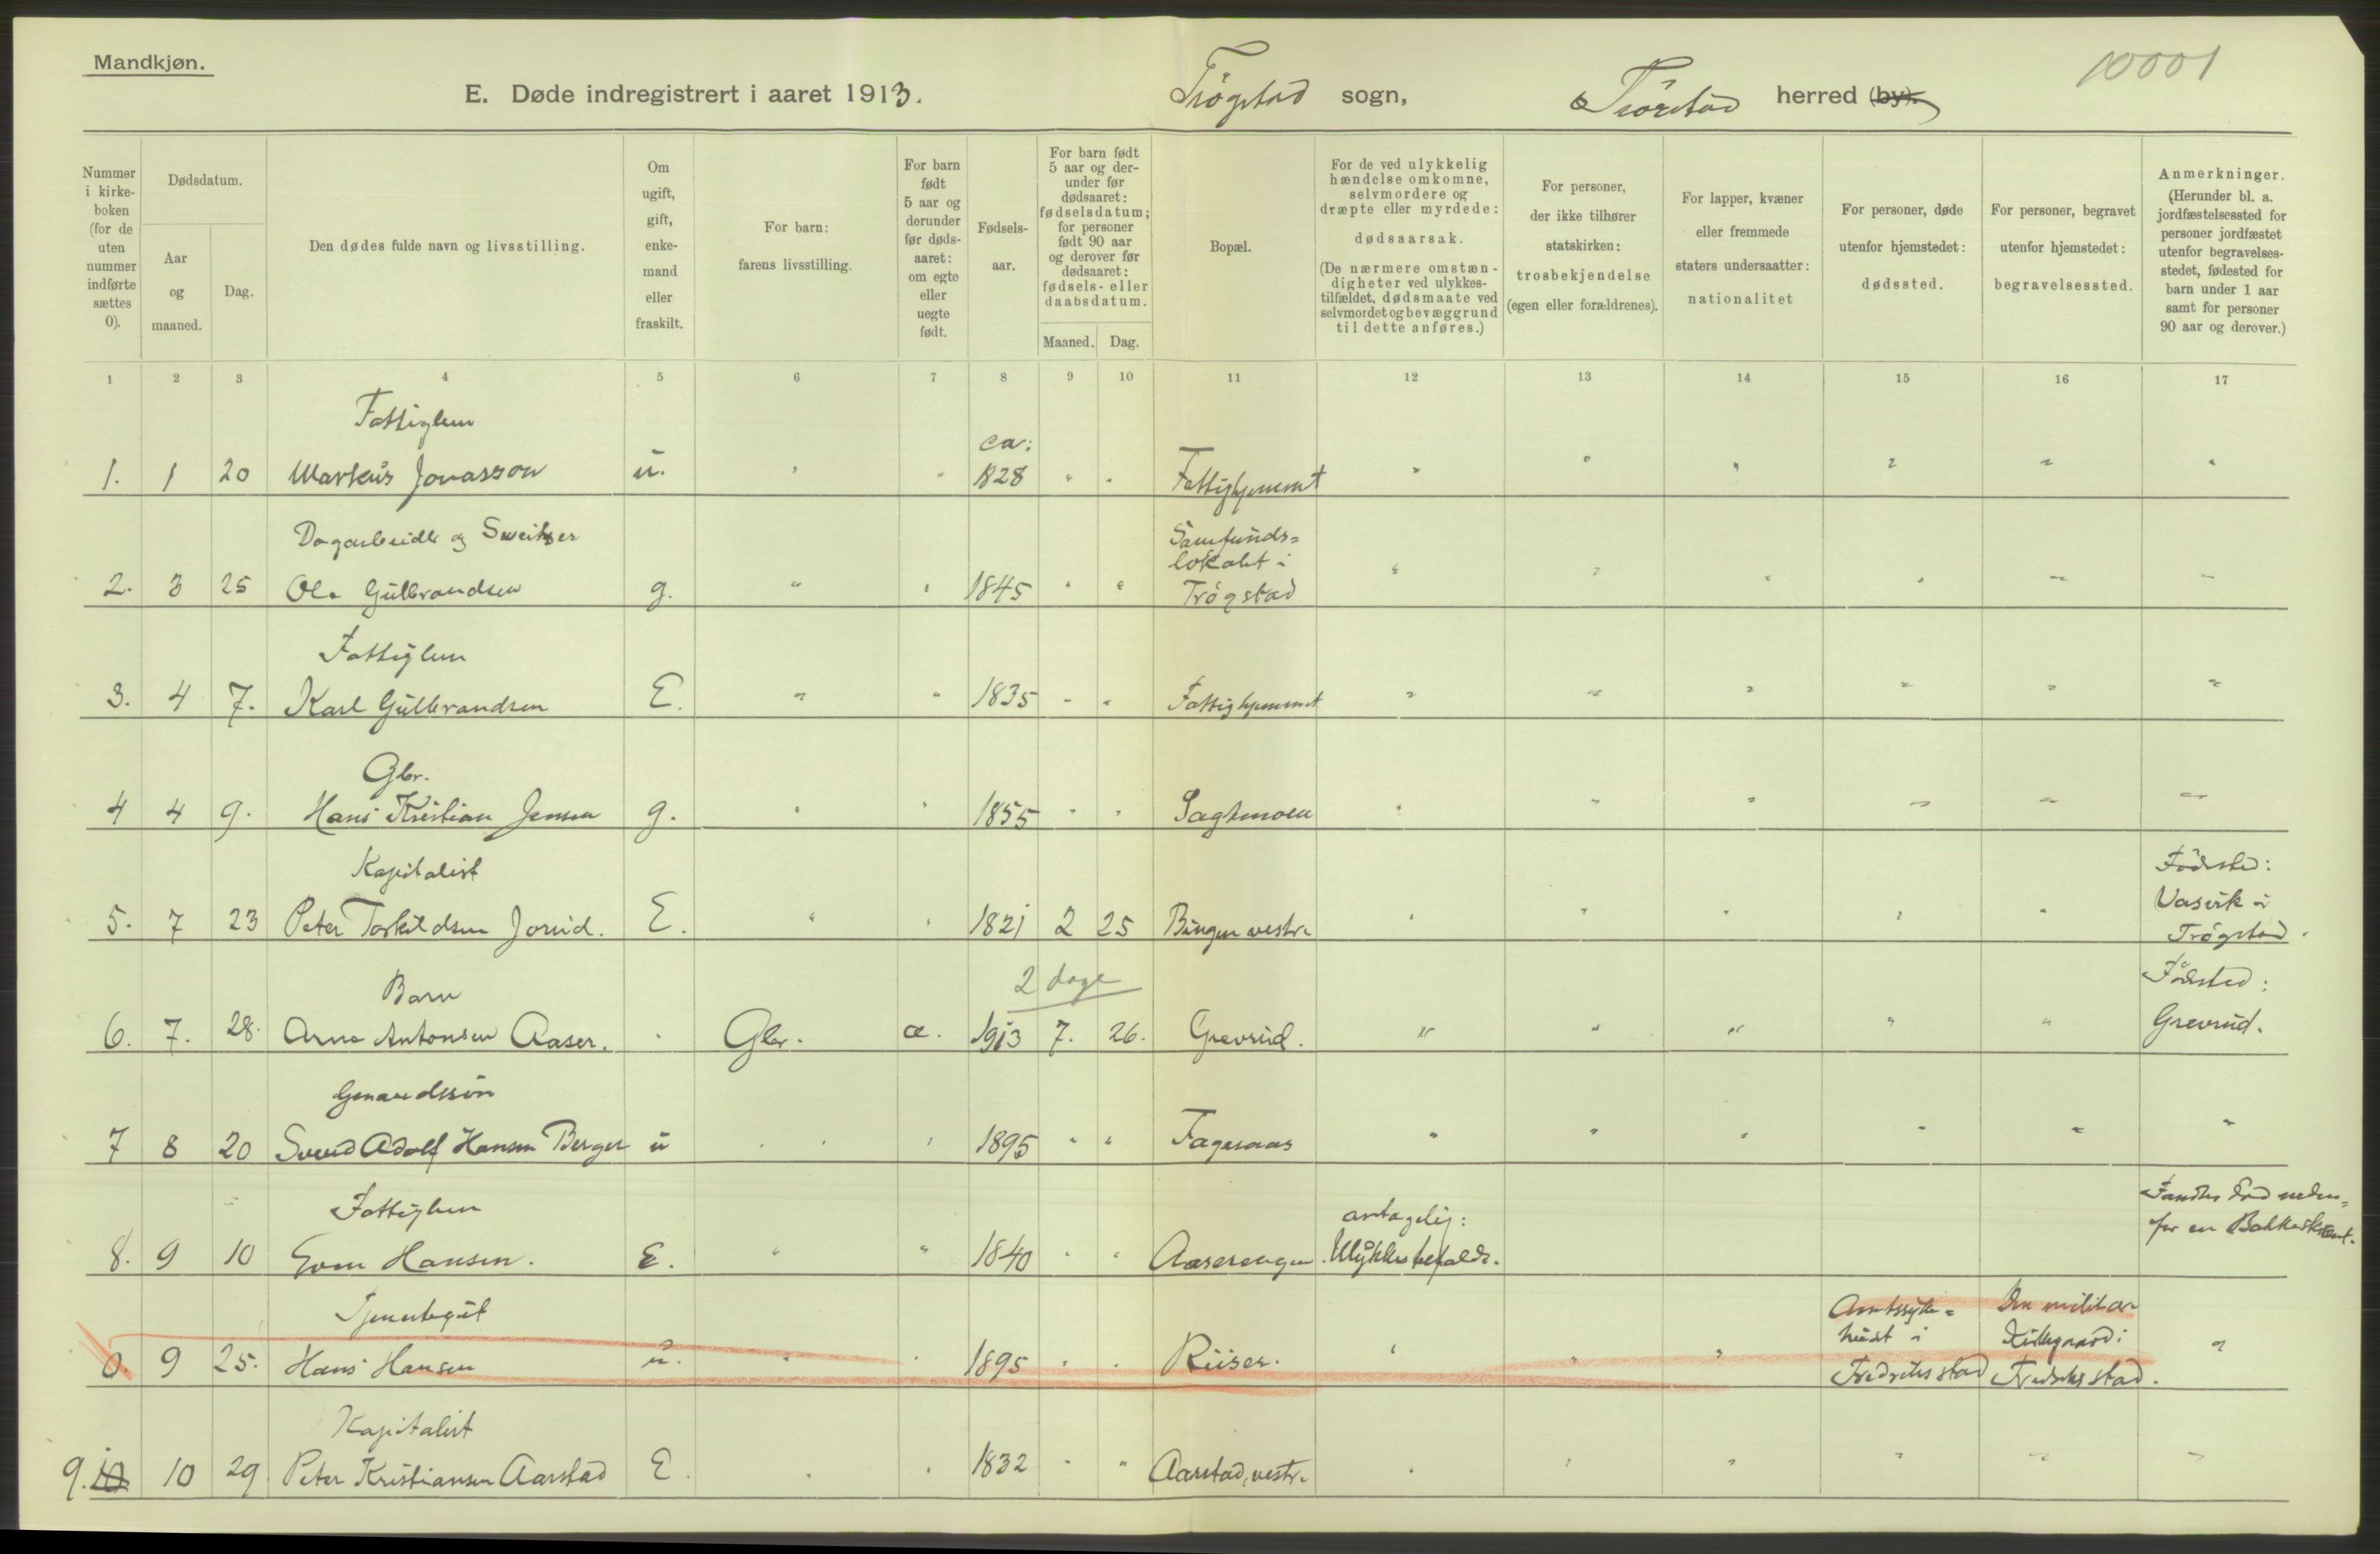 Mandkjøn.
10001
E. Døde indregistrert i aaret 1913. Trøgstad sogn, herred (by).
Nummer i kirke-boken (for de uten nummer indførte sættes 0).
Dødsdatum.
Aar og maaned.
Dag.
Den dødes fulde navn og livsstilling.
Om ugift, gift, enke-mand eller fraskilt.
For barn: farens livsstilling.
For barn født 5 aar og derunder før døds-aaret: om egte eller uegte født.
Fødsels-aar.
For barn født 5 aar og der-under før dødsaaret: fødselsdatum; for personer født 90 aar og derover før dødsaaret: fødsels- eller daabsdatum.
Maaned. Dag.
Bopæl.
For de ved ulykkelig hændelse omkomne, selvmordere og dræpte eller myrdede: dødsaarsak. (De nærmere omstæn-digheter ved ulykkes-tilfældet, dødsmaate ved selvmordet og bevæggrund til dette anføres.)
For personer, der ikke tilhører statskirken: trosbekjendelse (egen eller forældrenes).
For lapper, kvæner eller fremmede staters undersaatter: nationalitet
For personer, døde utenfor hjemstedet: dødssted.
For personer, begravet utenfor hjemstedet: begravelsessted.
Anmerkninger. (Herunder bl. a. jordfæstelsessted for personer jordfæstet utenfor begravelses-stedet, fødested for barn under 1 aar samt for personer 90 aar og derover.)
1 2 3 4 5 6 7 8 9 10 11 12 13 14 15 16 17
Fattiglem
ca:
1. 1 20 Markus Jonasson u. " " 1828 " " Fattighjemmet " " " " " "
Dagarbeider og Sveitser
Samfunds=
lokalet i
2. 3 25 Ole Gulbrandsen g. " " 1845 " " Trøgstad " " " " " "
Fattiglem
3. 4 7. Karl Gulbrandsen E. " " 1835 " " Fattighjemmet " " " " " "
Gbr.
4 4 9. Hans Kristian Jensen g. " " 1855 " " " " " " " "
Kapitalist
Fødested:
Vasvik i
5. 7 23 Peter Torkildsen E. " " 1821 2 25 Bingen vestre " " " " " Trøgstad.
Barn
2 dage
Fødested:
6. 7. 28. Arne Antonsen Aaser. " Gbr. æ. 1913 7. 26. Grevrud. " " " " " Grevrud.
Gmandssøn
7 8 20 Svend Adolf Hansen Berger u " " 1895 " " Fageraas " " " " " "
Fattiglem
antagelig:
Fandtes død neden=
for en Bakkeskrent.
8. 9 10 Even Hansen. E. " " 1840 " " Aaserengen. Ulykkestilfælde.
Tjenestegut
Amtssyke=
huset i
Den militære
Kirkegaard i
0. 9 25. Hans Hansen u. " " 1895 " " Riiser. " " " Fredriksstad Fredriksstad. "
Kapitalist
9. 10 10 29. Peter Kristiansen Aarstad E. " " 1832 " " Aarstad, vestre " " " " " "